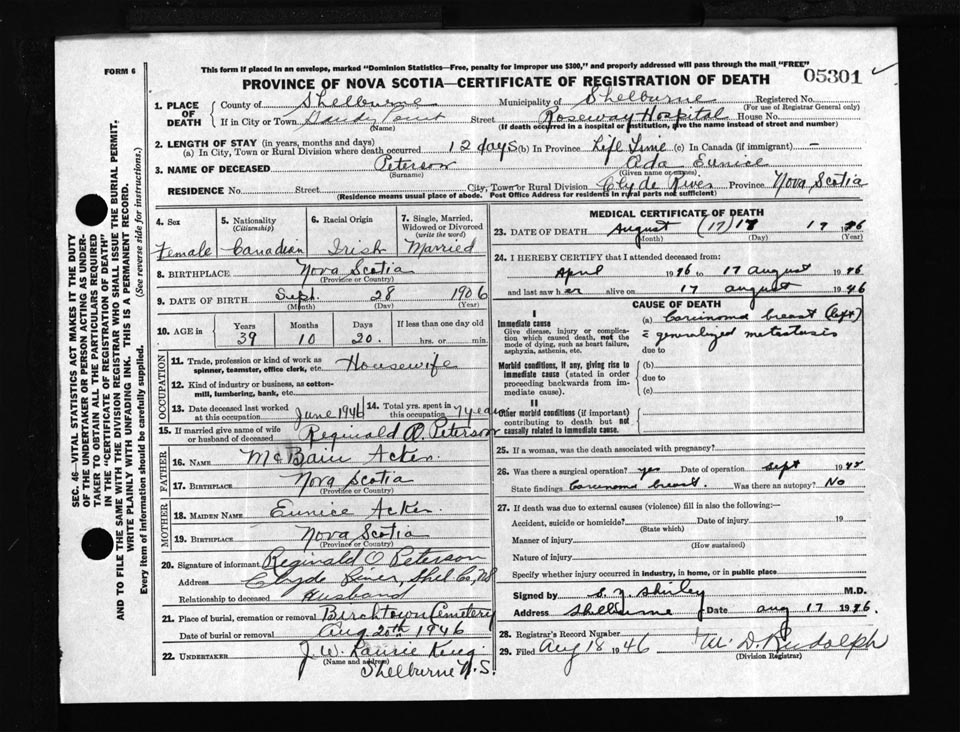 FORM 6
This form if placed in an envelope, marked "Dominion Statistics—Free, penalty for improper use $300," and properly addressed will pass through the mail "FREE"
PROVINCE OF NOVA SCOTIA—CERTIFICATE OF REGISTRATION OF DEATH
05301
1. PLACE OF DEATH { County of Shelburne Municipality of Shelburne Registered No.
(For use of Registrar General only)
If in City or Town Sandy Point Street Roseway Hospital House No.
(Name) (If death occurred in a hospital or institution, give the name instead of street and number)
2. LENGTH OF STAY (in years, months and days)
(a) In City, Town or Rural Division where death occurred 12 days (b) In Province Life Time (c) In Canada (if immigrant) —
3. NAME OF DECEASED Peterson Ada Eunice
(Surname) (Given name or names)
RESIDENCE No. Street City, Town or Rural Division Clyde River Province Nova Scotia
(Residence means usual place of abode. Post Office Address for residents in rural parts not sufficient)
SEC. 46—VITAL STATISTICS ACT MAKES IT THE DUTY
OF THE UNDERTAKER OR PERSON ACTING AS UNDER-
TAKER TO OBTAIN ALL THE PARTICULARS REQUIRED
IN THE "CERTIFICATE OF REGISTRATION OF DEATH"
AND TO FILE THE SAME WITH THE DIVISION REGISTRAR WHO SHALL ISSUE THE BURIAL PERMIT.
WRITE PLAINLY WITH UNFADING INK. THIS IS A PERMANENT RECORD.
Every item of information should be carefully supplied. (See reverse side for instructions.)
4. Sex 5. Nationality (Citizenship) 6. Racial Origin 7. Single, Married, Widowed or Divorced (write the word)
Female Canadian Irish Married
8. BIRTHPLACE Nova Scotia
(Province or Country)
9. DATE OF BIRTH Sept. 28 1906
(Month) (Day) (Year)
10. AGE in { Years Months Days If less than one day old
39 10 20. hrs. or min.
OCCUPATION
11. Trade, profession or kind of work as spinner, teamster, office clerk, etc. Housewife
12. Kind of industry or business, as cotton-mill, lumbering, bank, etc.
13. Date deceased last worked at this occupation June 1946 14. Total yrs. spent in this occupation 7 years
15. If married give name of wife or husband of deceased Reginald O. Peterson
FATHER
16. NAME McBain Acker.
17. BIRTHPLACE Nova Scotia
(Province or Country)
MOTHER
18. MAIDEN NAME Eunice Acker.
19. BIRTHPLACE Nova Scotia
(Province or Country)
20. Signature of informant Reginald O Peterson
Address Clyde River, Shel Co, NS
Relationship to deceased Husband
21. Place of burial, cremation or removal Birchtown Cemetery
Date of burial or removal Aug 20th 1946
22. UNDERTAKER J. W. Laurie King
(Name and address) Shelburne N.S.
MEDICAL CERTIFICATE OF DEATH
23. DATE OF DEATH August (17) 17 1946
(Month) (Day) (Year)
24. I HEREBY CERTIFY that I attended deceased from:
April 1946 to 17 August 1946
and last saw her alive on 17 August 1946
CAUSE OF DEATH
I
Immediate cause
Give disease, injury or complication which caused death, not the mode of dying, such as heart failure, asphyxia, asthenia, etc.
(a) Carcinoma breast (left)
c generalized metastasis
due to
Morbid conditions, if any, giving rise to immediate cause (stated in order proceeding backwards from immediate cause).
(b)
due to
(c)
II
Other morbid conditions (if important) contributing to death but not causally related to immediate cause.
25. If a woman, was the death associated with pregnancy?
26. Was there a surgical operation? yes Date of operation Sept 194
State findings Carcinoma breast. Was there an autopsy? No
27. If death was due to external causes (violence) fill in also the following:—
Accident, suicide or homicide? Date of injury 19
(State which)
Manner of injury
(How sustained)
Nature of injury
Specify whether injury occurred in industry, in home, or in public place
Signed by Shirley M.D.
Address Shelburne Date Aug 17 1946.
28. Registrar's Record Number
29. Filed Aug 18 1946 D. Rudolph
(Division Registrar)